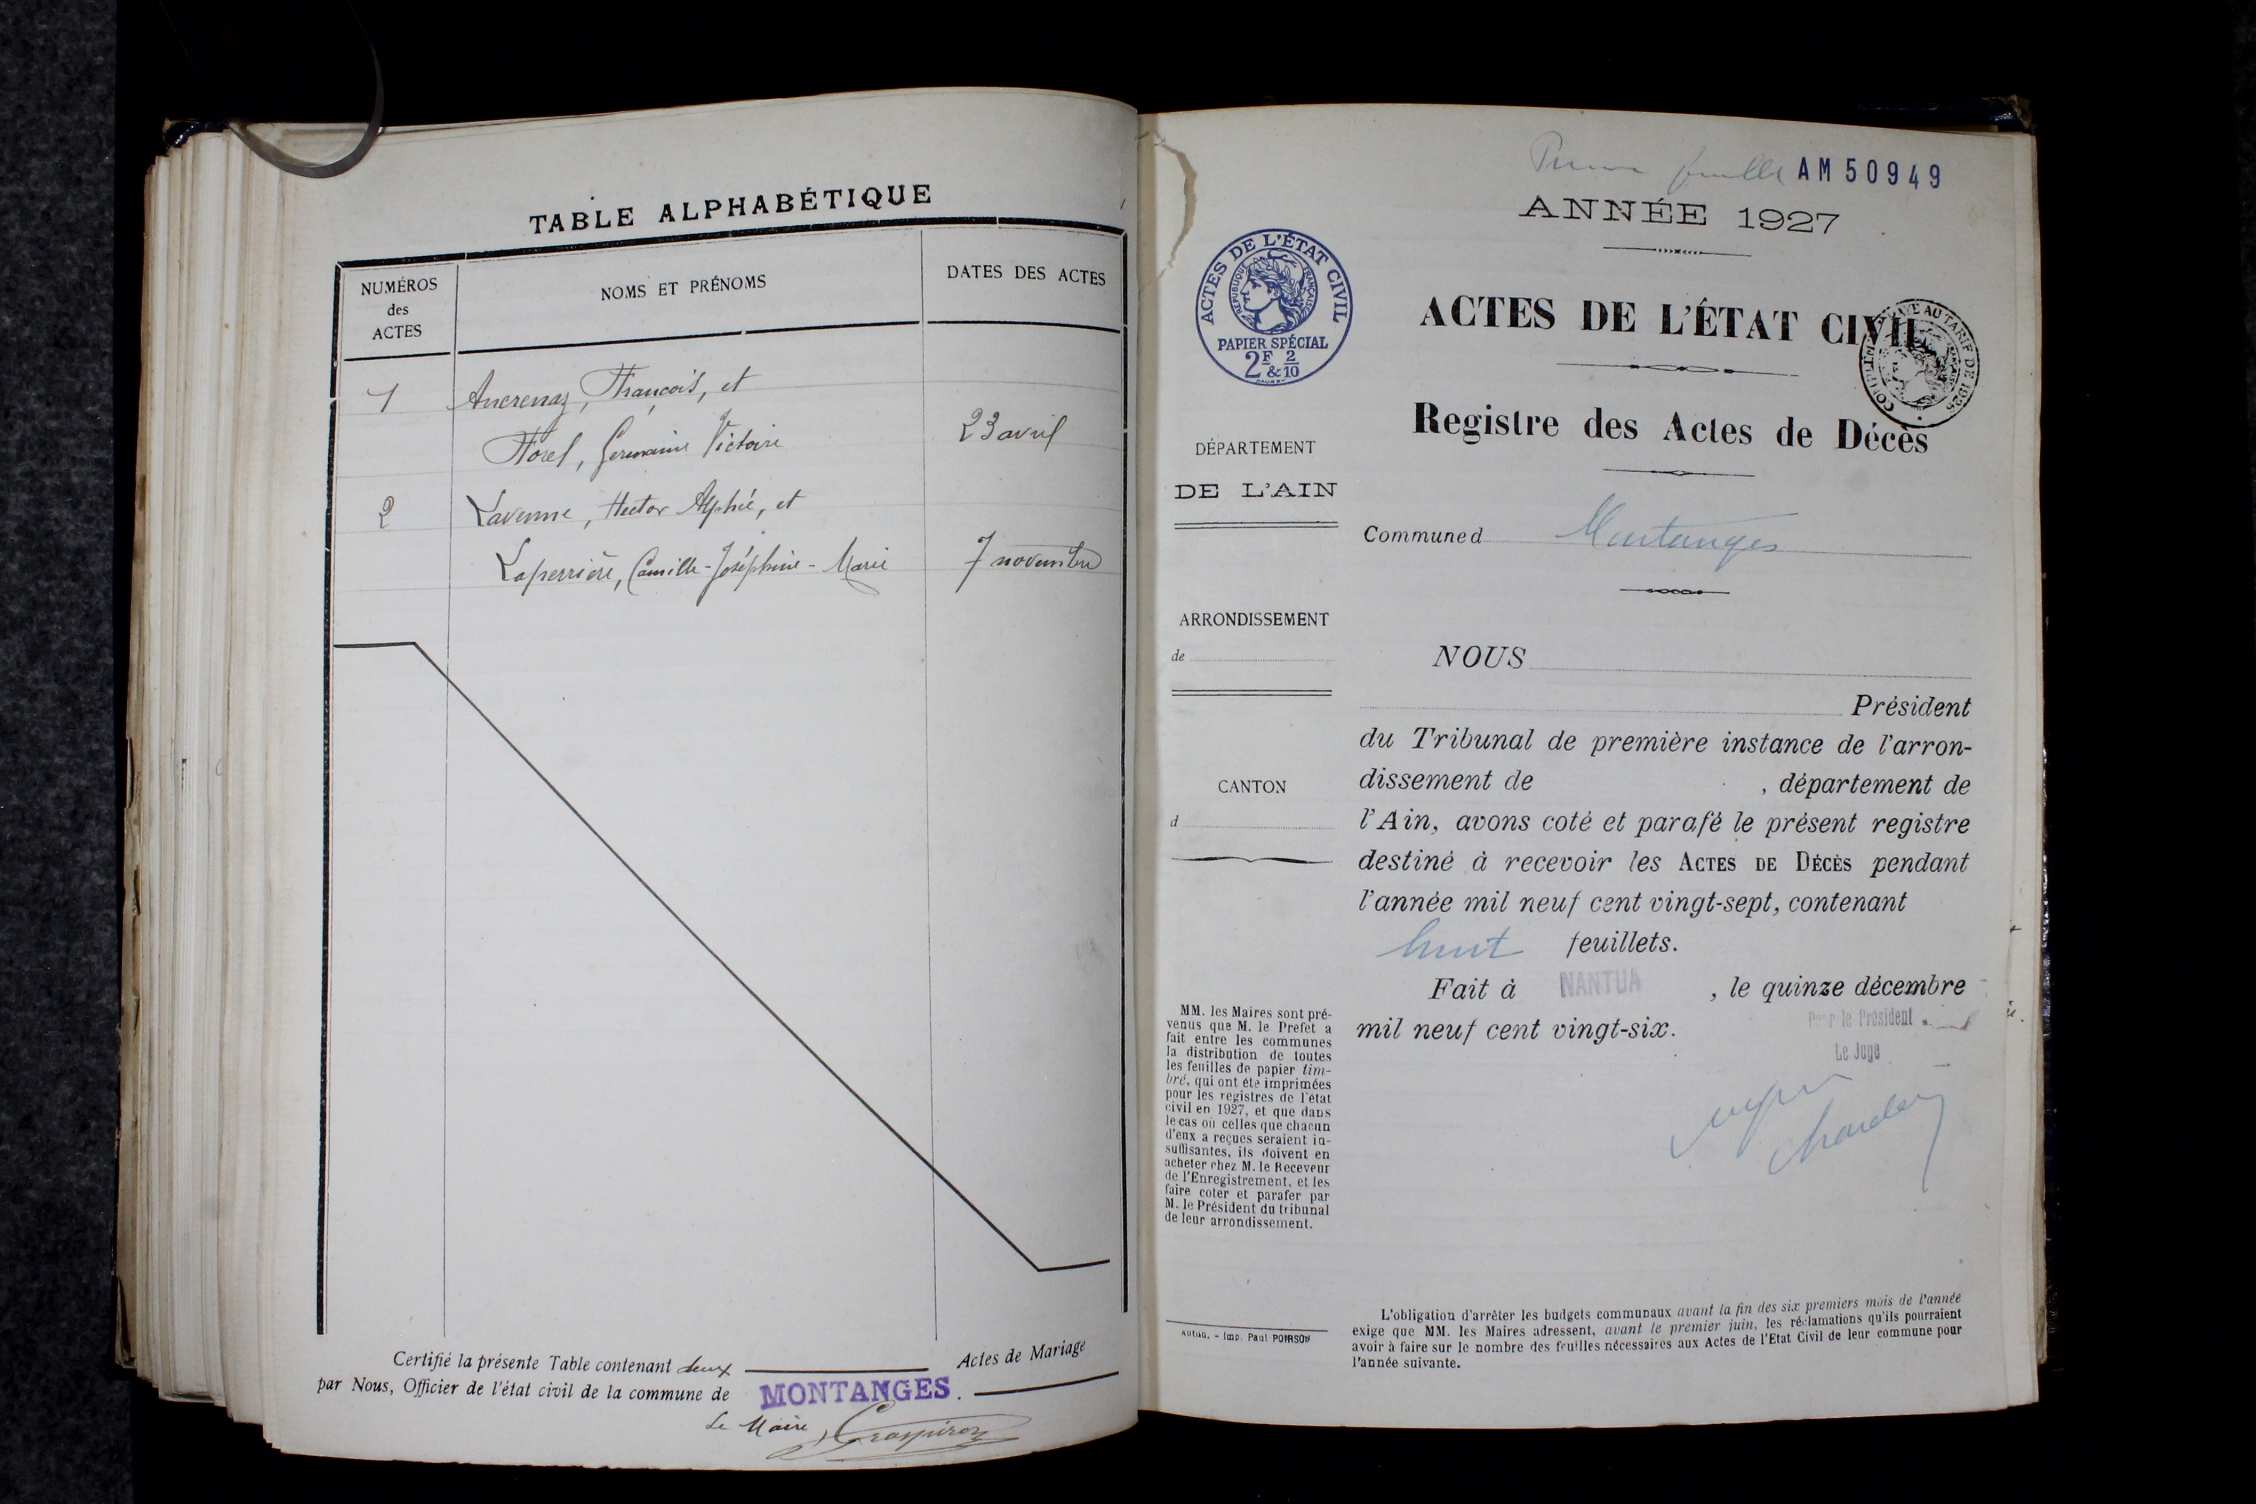 TABLE ALPHABÉTIQUE
NUMÉROS
des
ACTES
NOMS ET PRÉNOMS
DATES DES ACTES
1 Ancrenaz, François, et
Florel, Germaine Victoire 23 avril
2 Lavenne, Hector Alphé, et
Laperrière, Camille-Joséphine-Marie 7 novembre
Certifié la présente Table contenant deux Actes de Mariage
par Nous, Officier de l'état civil de la commune de MONTANGES.
Le Maire,
feuille AM50949
ANNÉE 1927
ACTES DE L'ÉTAT CIVIL
RÉPUBLIQUE FRANÇAISE
PAPIER SPÉCIAL
2F & 2/10
ACTES DE L'ÉTAT CIVIL
Registre des Actes de Décès
DÉPARTEMENT
DE L'AIN
Commune d Montanges
ARRONDISSEMENT
de
CANTON
d
NOUS
Président
du Tribunal de première instance de l'arron-
dissement de , département de
l'Ain, avons coté et parafé le présent registre
destiné à recevoir les ACTES DE DÉCÈS pendant
l'année mil neuf cent vingt-sept, contenant
huit feuillets.
Fait à NANTUA, le quinze décembre
mil neuf cent vingt-six.
Pour le Président
Le Juge
MM. les Maires sont pré-
venus que M. le Préfet a
fait entre les communes
la distribution de toutes
les feuilles de papier tim-
bré, qui ont été imprimées
pour les registres de l'état
civil en 1927, et que dans
le cas où celles que chacun
d'eux a reçues seraient in-
suffisantes, ils doivent en
acheter chez M. le Receveur
de l'Enregistrement, et les
faire coter et parafer par
M. le Président du tribunal
de leur arrondissement.
Autun. - Imp. Paul POIRSON
L'obligation d'arrêter les budgets communaux avant la fin des six premiers mois de l'année
exige que MM. les Maires adressent, avant le premier juin, les réclamations qu'ils pourraient
avoir à faire sur le nombre des feuilles nécessaires aux Actes de l'Etat Civil de leur commune pour
l'année suivante.